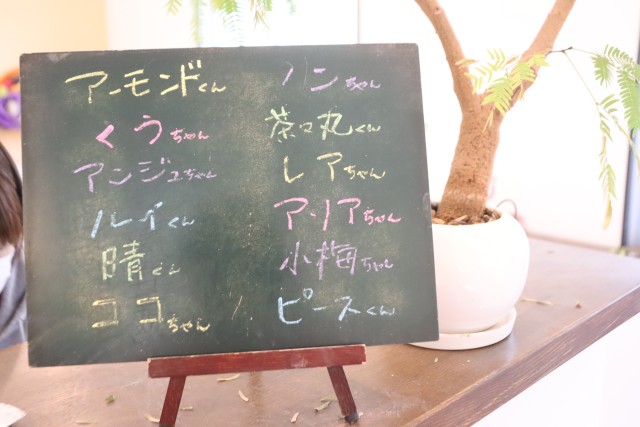 アーモンドくん
くうちゃん
アンジュちゃん
ルイくん
晴くん
ココちゃん
ハンちゃん
茶々丸くん
レアちゃん
アリアちゃん
小梅ちゃん
ピースくん